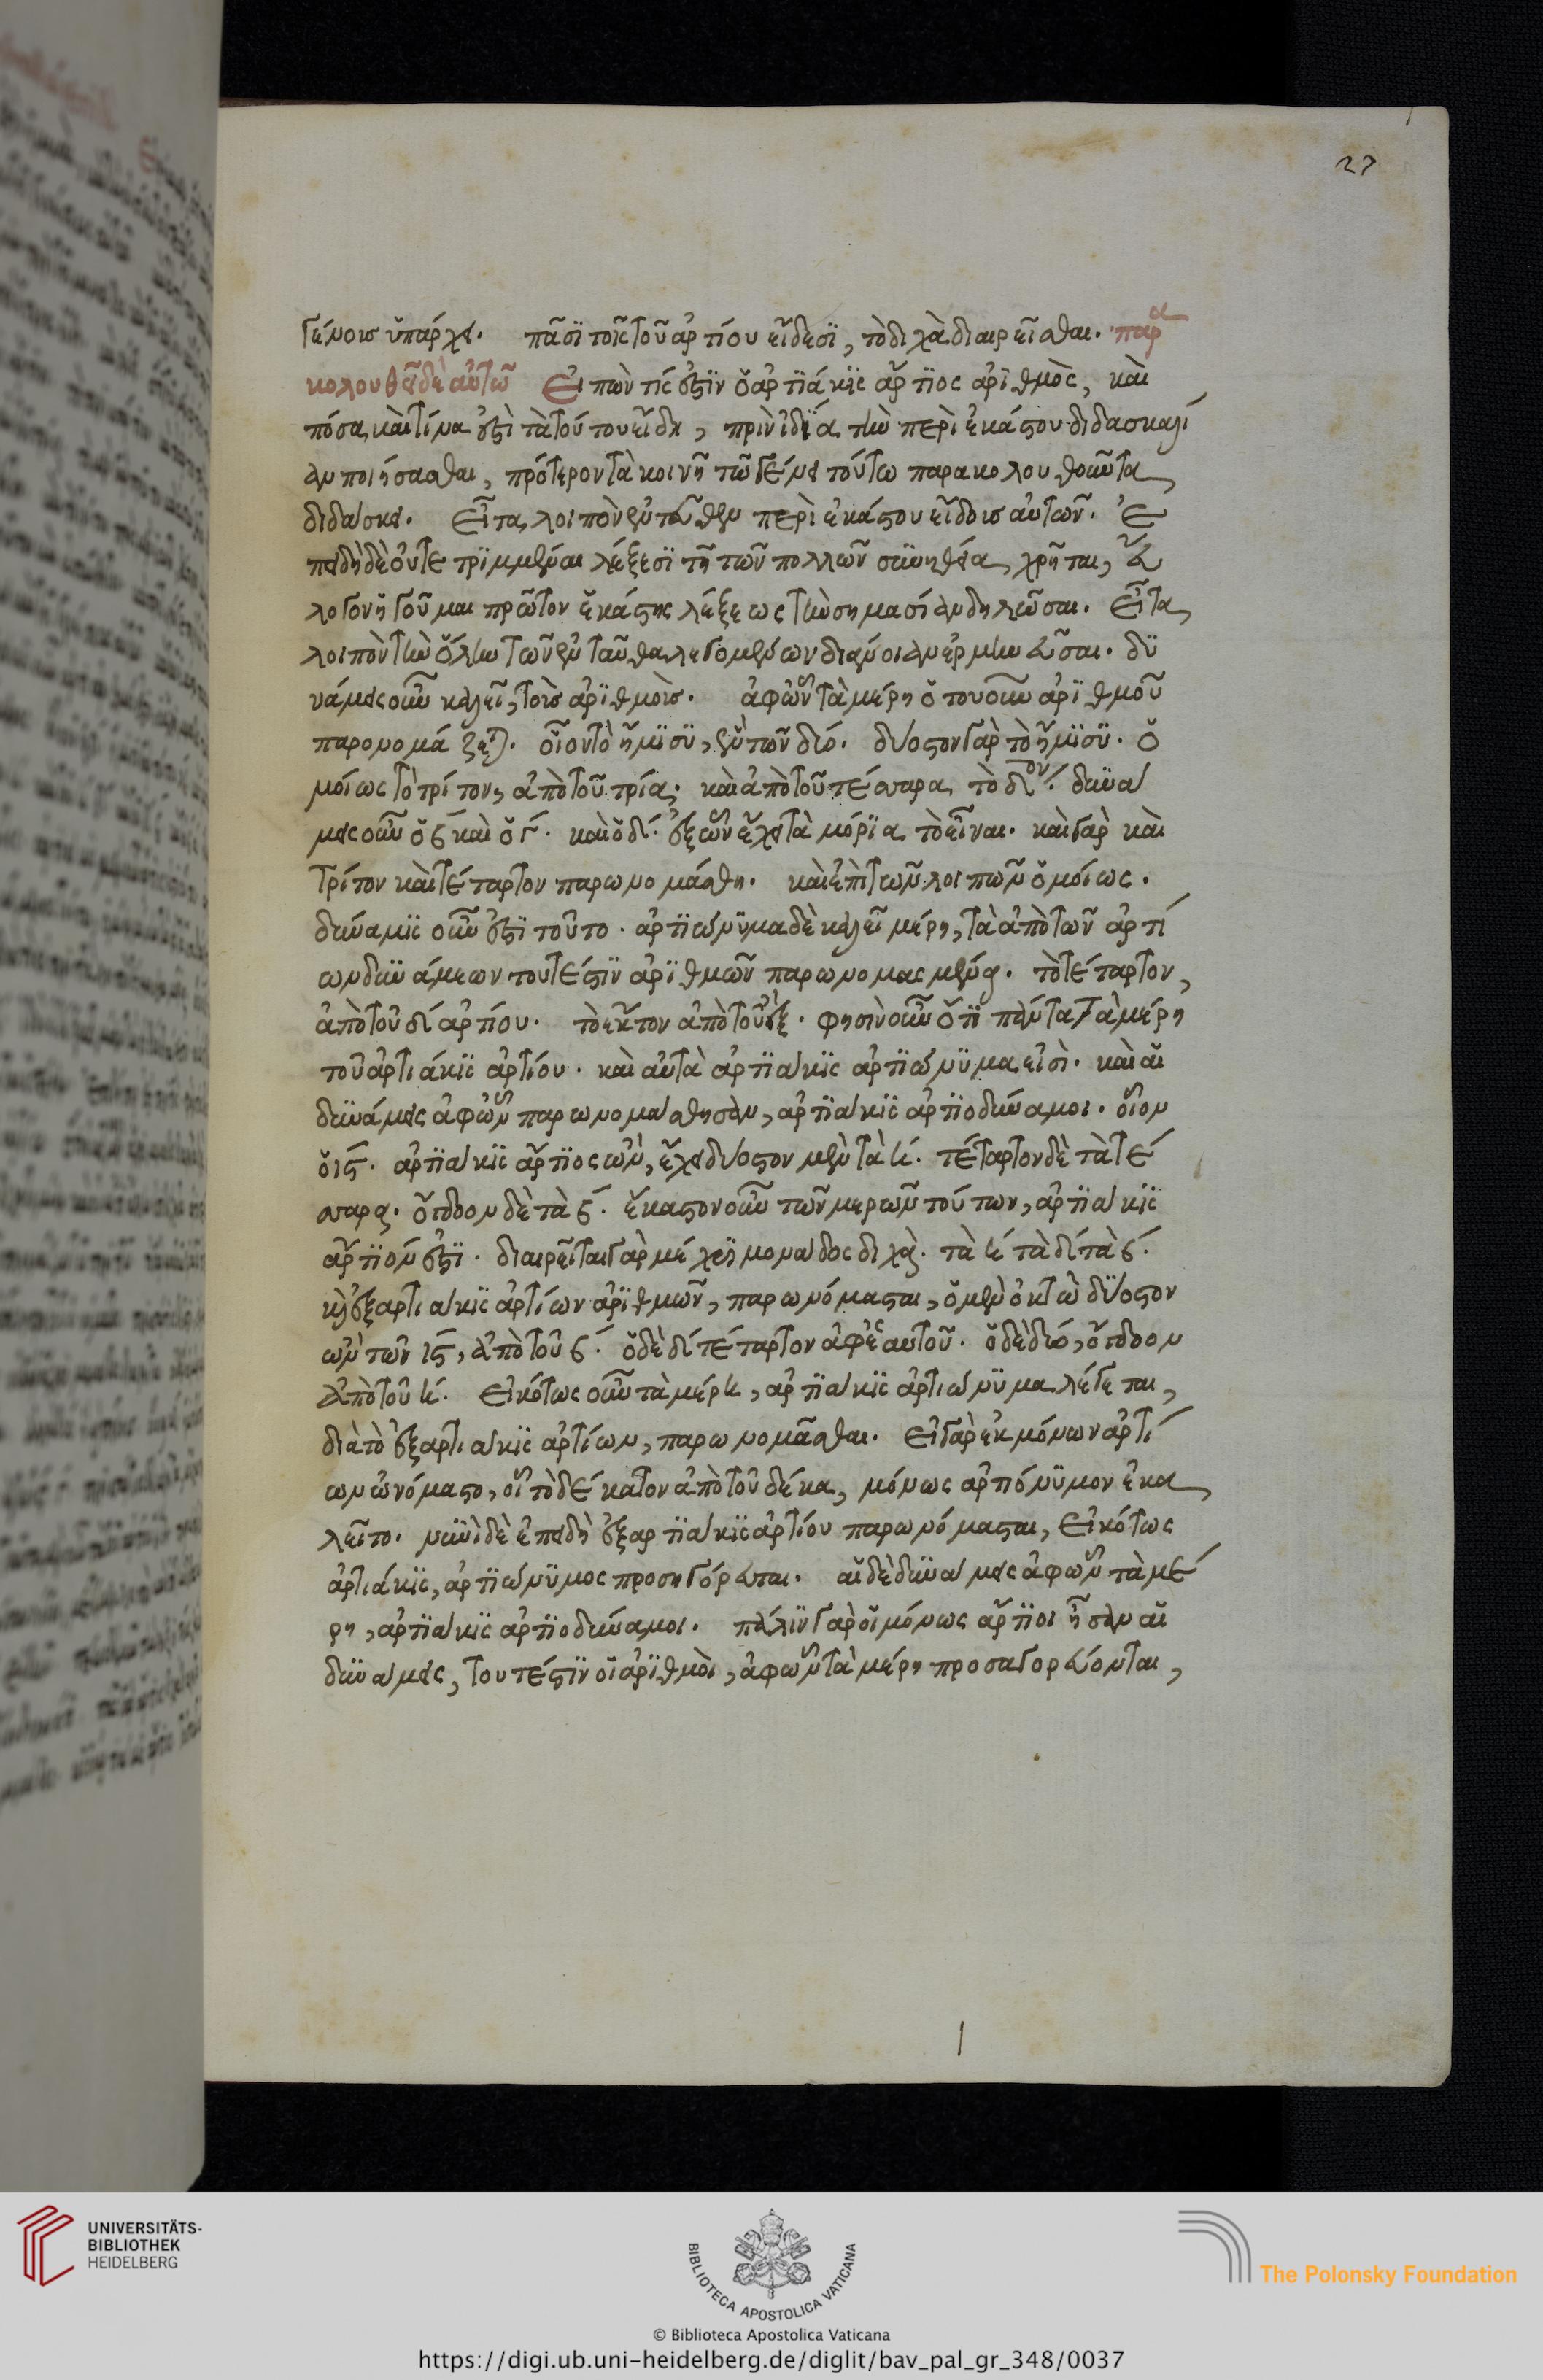 27
γένους ὑπάρχει. πᾶσι τοῖς τοῦ ἀρτίου εἴδεσι, τὸ δίχα διαιρεῖσθαι. παρα
κολουθεῖ δὲ αὐτῶ Εἰπὼν τίς ἐστὶν ὁ ἀρτιάκις ἄρτιος ἀριθμὸς, καὶ
πόσα καὶ τίνα ἐστὶ τὰ τούτου εἴδη, πρὶν ἰδία τὴν περὶ ἑκάστου διδασκαλί
αν ποιήσασθαι, πρότερον τὰ κοινῆ τῶ γένει τούτω παρακολουθοῦντα
διδάσκει. Εἶτα λοιπὸν ἐντεῦθεν περὶ ἑκάστου εἴδους αὐτῶν. Ἐ
πειδὴ δὲ οὔτε τετριμμέναι λέξεσι τῆ τῶν πολλῶν συνηθεία χρῆται, εὔ
λογον ἡγοῦμαι πρῶτον ἑκάστης λέξεως τὴν σημασίαν δηλῶσαι. Εἶτα
λοιπὸν τὴν ὅλην τῶν ἐνταῦθα λεγομένων διάνοιαν ἑρμηνεῦσαι. δυ
νάμεις οὖν καλεῖ, τοὺς ἀριθμούς. ἀφ' ὧν τὰ μέρη ὁτουοῦν ἀριθμοῦ
παρονομάζεται. οἷον τὸ ἥμισυ, ἐκ τῶν δύο. δυοστὸν γὰρ τὸ ἥμισυ. ὁ
μοίως τὸ τρίτον, ἀπὸ τοῦ τρία. καὶ ἀπὸ τοῦ τέσσαρα τὸ δ̅ον. δυνά
μεις οὖν ὁ β καὶ ὁ γ. καὶ ὁ δ. ἐξ ὧν ἔχει τὰ μόρια τὸ εἶναι. καὶ γὰρ καὶ
τρίτον καὶ τέταρτον παρωνομάσθη. καὶ ἐπὶ τῶν λοιπῶν ὁμοίως.
δύναμις οὖν ἐστὶ τοῦτο. ἀρτιώνυμα δὲ καλεῖ μέρη, τὰ ἀπὸ τῶν ἀρτί
ων δυνάμεων τουτέστιν ἀριθμῶν παρωνομασμένα. τὸ τέταρτον,
ἀπὸ τοῦ δ ἀρτίου. τὸ ἕκτον ἀπὸ τοῦ ἕξ. φησὶν οὖν ὅτι πάντα τὰ μέρη
τοῦ ἀρτιάκις ἀρτίου. καὶ αὐτὰ ἀρτιάκις ἀρτιώνυμα εἰσὶ. καὶ αἱ
δυνάμεις ἀφ' ὧν παρωνομάσθησαν, ἀρτιάκις ἀρτιοδύναμοι. οἷον
ὁ ιϛ. ἀρτιάκις ἄρτιος ὢν, ἔχει δυοστὸν μὲν τὰ η. τέταρτον δὲ τὰ τέ
σσαρα. ὄγδοον δὲ τὰ β. ἕκαστον οὖν τῶν μερῶν τούτων, ἀρτιάκις
ἄρτιόν ἐστι. διαιρεῖται γὰρ μέχρι μονάδος δίχα. τὰ η τὰ δ τὰ β.
καὶ ἐξ ἀρτιάκις ἀρτίων ἀριθμῶν, παρωνόμασται, ὁ μὲν ὀκτὼ δυοστὸν
ὢν τῶν ιϛ, ἀπὸ τοῦ β. ὁ δὲ δ τέταρτον ἀφ' ἑαυτοῦ. ὁ δὲ δύο, ὄγδοον
ἀπὸ τοῦ η. Εἰκότως οὖν τὰ μέρη, ἀρτιάκις ἀρτιώνυμα λέγεται,
διὰ τὸ ἐξ ἀρτιάκις ἀρτίων, παρωνομᾶσθαι. Εἰ γὰρ ἐκ μόνων ἀρτί
ων ὠνόμαστο, οἷον τὸ δέκατον ἀπὸ τοῦ δέκα, μόνως ἀρτιώνυμον ἐκα
λεῖτο. νυνὶ δὲ ἐπειδὴ ἐξ ἀρτιάκις ἀρτίου παρωνόμασται, Εἰκότως
ἀρτιάκις, ἀρτιώνυμος προσηγόρευται. αἱ δὲ δυνάμεις ἀφ' ὧν τὰ μέ
ρη, ἀρτιάκις ἀρτιοδύναμοι. πάλιν γὰρ οἱ μόνως ἄρτιοι ἦσαν αἱ
δυνάμεις, τουτέστιν οἱ ἀριθμοὶ, ἀφ' ὧν τὰ μέρη προσαγορεύονται,
UNIVERSITÄTS-
BIBLIOTHEK
HEIDELBERG
BIBLIOTECA APOSTOLICA VATICANA
The Polonsky Foundation
© Biblioteca Apostolica Vaticana
https://digi.ub.uni-heidelberg.de/diglit/bav_pal_gr_348/0037